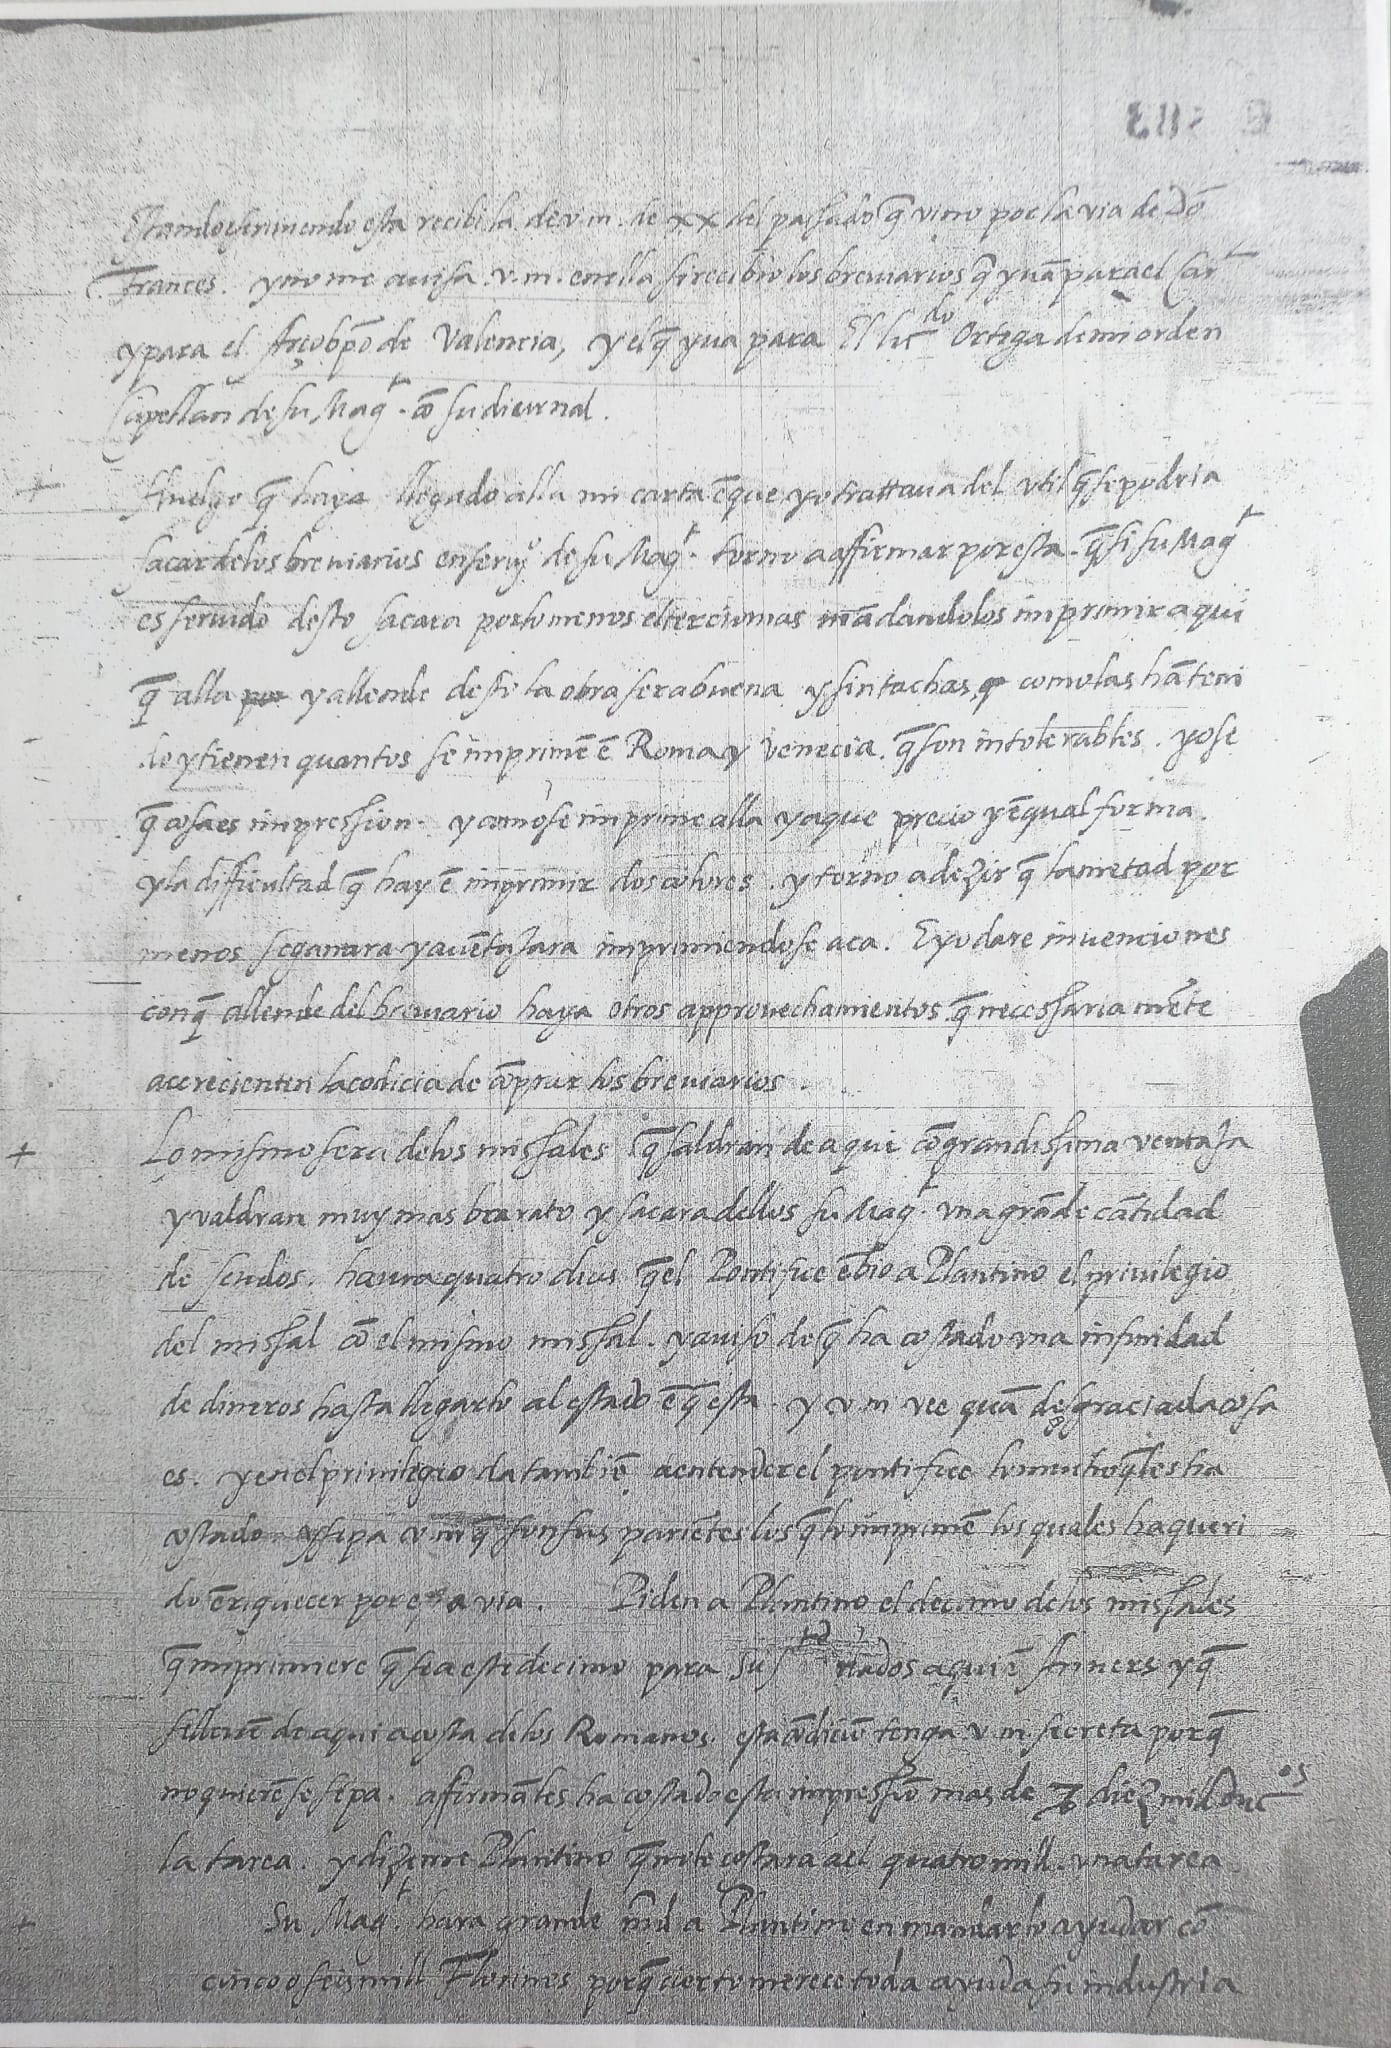 Estando escriviendo esta recibi la de v.m. de xx del passado q̃ vino por la via de Dõ
Frances. y no me avisa v.m. en ella si recibio los breviarios q̃ yuã para el Car^l
y para el Arçobp̃o de Valencia, y el q̃ yua para El lic^do Ortega de mi orden
Capellan de su Mag^t. cõ su diurnal.
Huelgo q̃ haya llegado alla mi carta ẽ que yo trattaua del vtil q̃ se podria
sacar de los breuiarios en seruy^o de su Mag^t. torno a affirmar por esta. q̃ si su Mag^t
es seruido desto sacara por lo menos el tercio mas mãdandolos imprimir aqui
q̃ alla y allende desto la obra sera buena y sin tachas como las hã teni
do y tienen quantos se imprimẽ ẽ Roma y Venecia. q̃ son intolerables. yo se
q̃ cosa es impression. y como se imprime alla y a que precio y ẽ qual forma.
y la difficultad q̃ hay ẽ imprimir dos colores. y torno a dezir q̃ la metad por
menos se ganara y auẽtajara imprimiendose aca. E yo dare inuenciones
con q̃ allende del breuiario haya otros approuechamientos q̃ necessariamẽte
acrecienten la codicia de cõprar los breuiarios.
Lo mismo sera de los missales q̃ saldran de aqui cõ grandissima ventaja
y valdran muy mas barato y sacara dellos su Mag^t. vna grãde cãtidad
de scudos. haura quatro dias q̃ el Pontifice ẽbio a Plantino el priuilegio
del missal cõ el mismo missal. y auiso de q̃ ha costado vna infinidad
de dineros hasta llegarlo al estado ẽ q̃ esta. y v m vee quã desgraciada cosa
es. y en el priuilegio da tambiẽ a entender el pontifice lo mucho q̃ les ha
costado y sepa v m q̃ son sus pariẽtes los q̃ lo imprimẽ los quales ha queri
do ẽriquecer por esta via. Piden a Plantino el decimo de los missales
q̃ imprimiere q̃ sea este decimo para sus aquiẽ y q̃
se lleuẽ de aqui a costa de los Romanos. esta cõdiciõ tenga v m secreta porq̃
no quierẽ se sepa. afirmã les ha costado esta impressiõ mas de diez mil duc^os
la tarea. y dizeme Plantino q̃ no le costara a el quatro mill. vna tarea
Su Mag^t. hara grande m̃d a Plantino en mandarlo ayudar cõ
cinco o seis mill Florines porq̃ cierto merece toda ayuda su industria